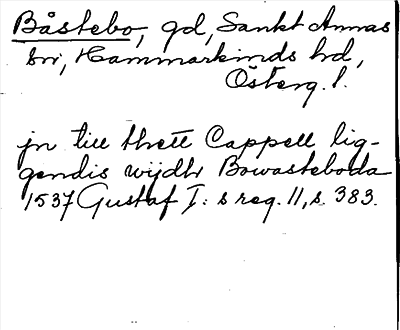 Båstebo, gd, Sankt Annas
sn, Hammarkinds hd,
Österg. l.
jn till thett Cappell lig-
gendis wijdh Bowasteboda
1537 Gustaf I: s reg. 11, s. 383.